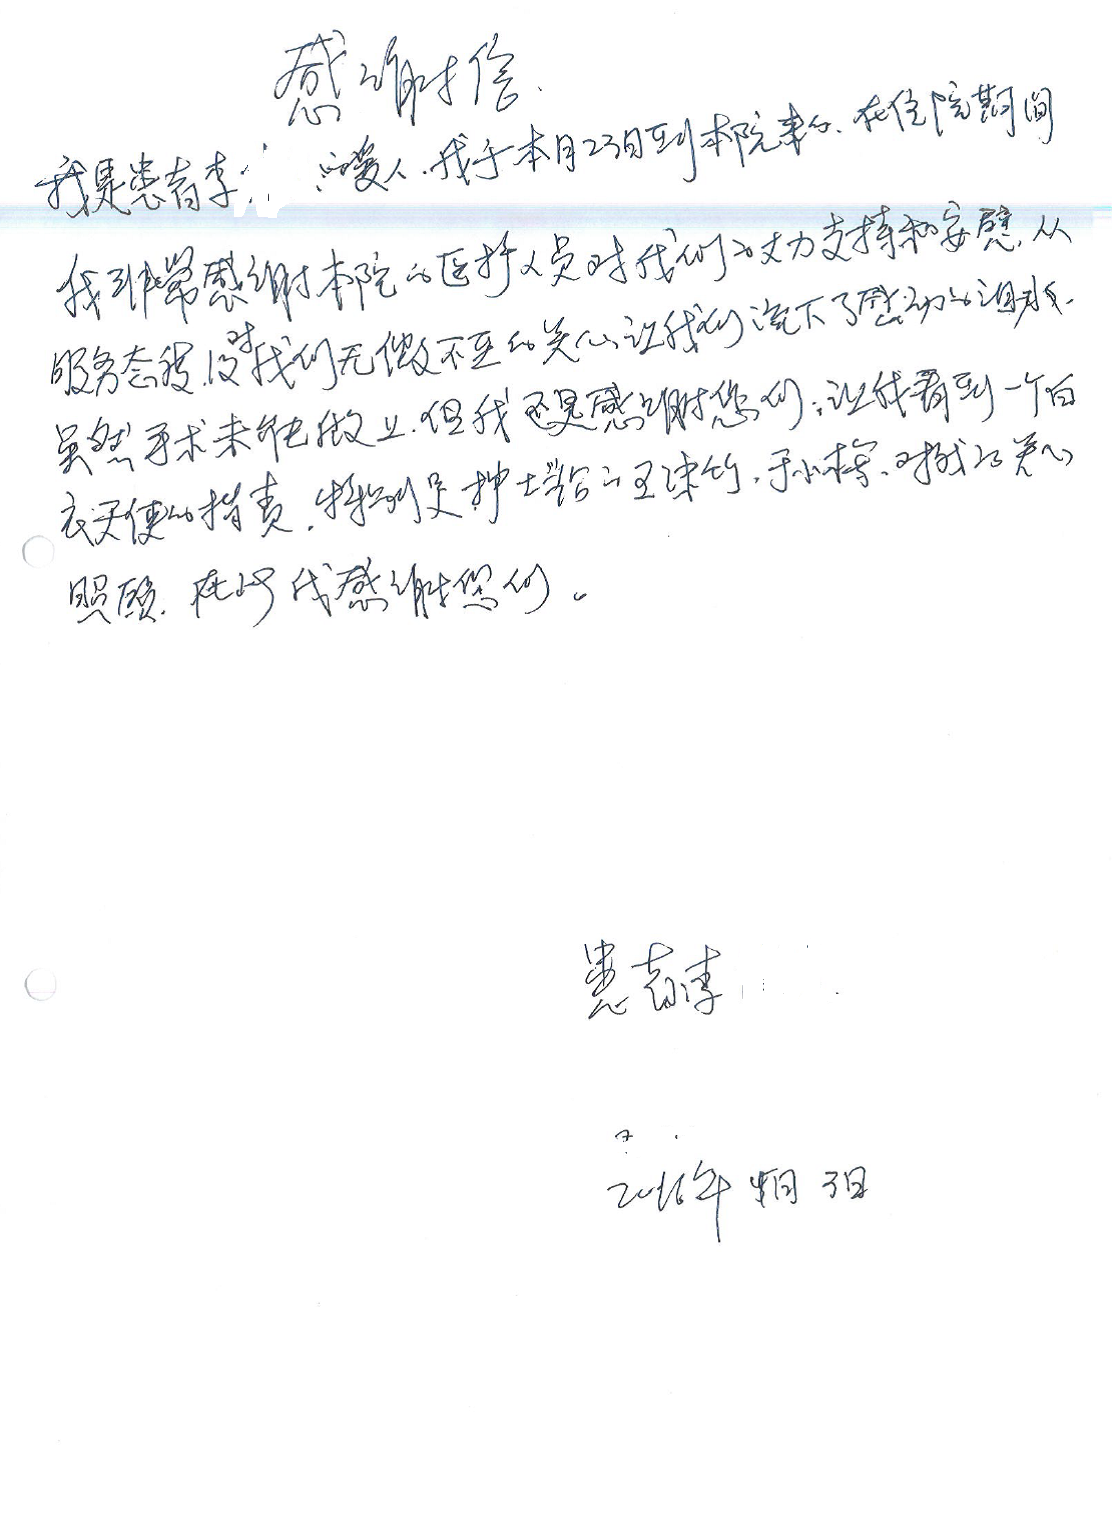 感谢信.
我是患者李 的爱人.我于本月23日到本院来.在住院期间
我非常感谢本院的医护人员对我们的大力支持和安慰.从
服务态度,对我们无微不至的关心,让我们流下了感动的泪水.
虽然手术未能做上.但我还是感谢您们;让我看到一个白
衣天使的指责.特别是护士站的王.于小梅.对我的关心
照顾.在此我感谢您们。
患者李
2016年 月3日